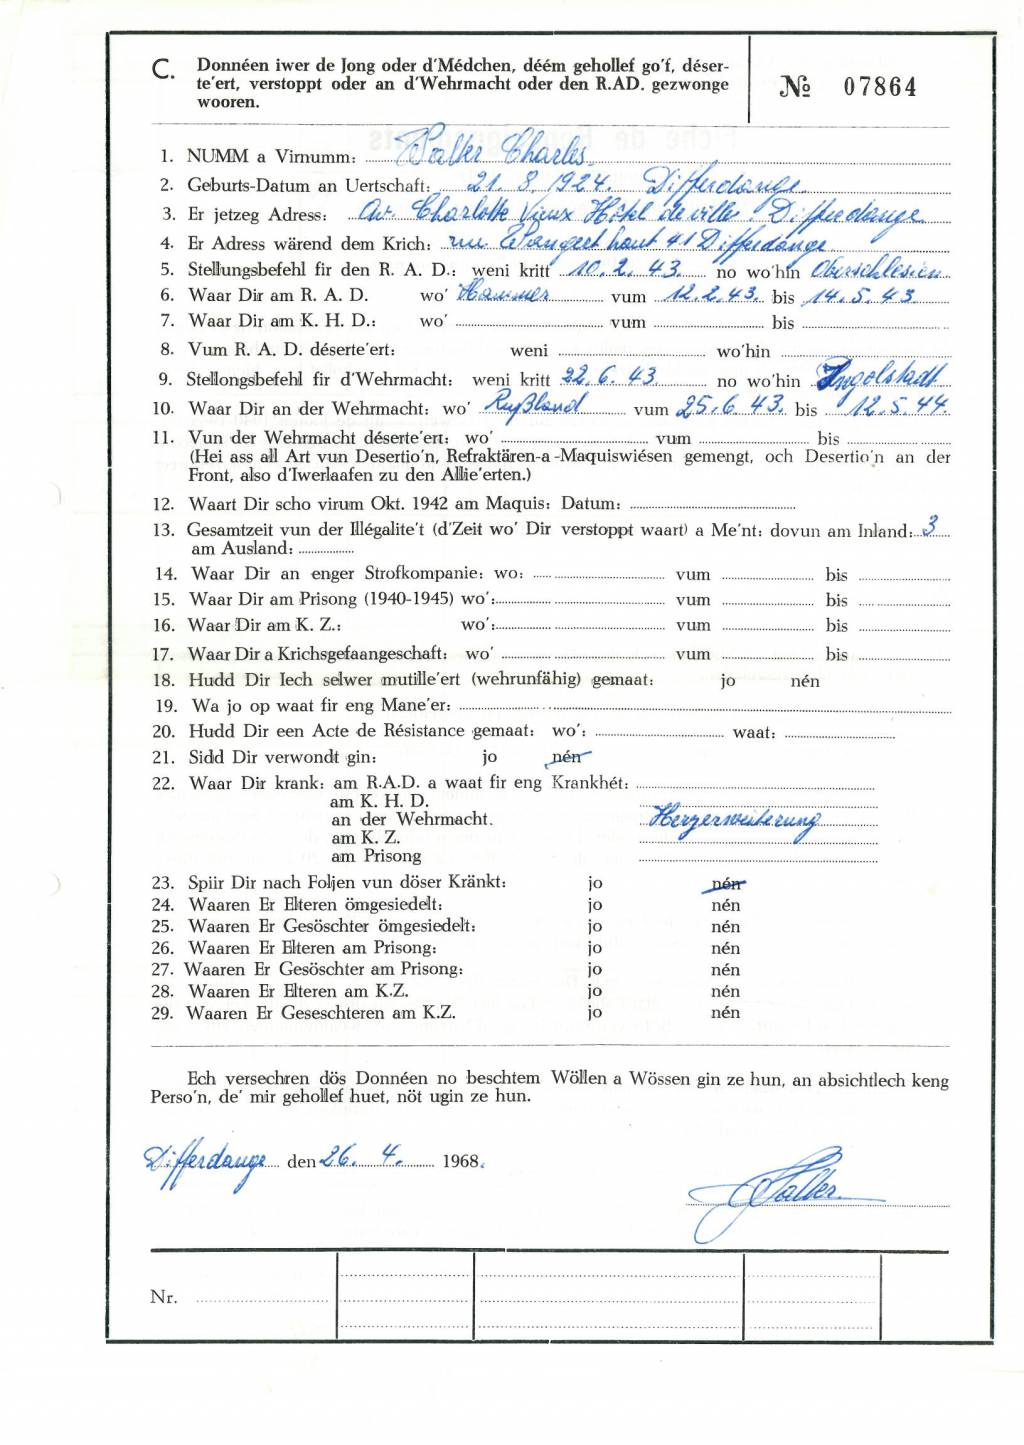 C. Donnéen iwer de Jong oder d'Médchen, déém gehollef go'f, déser-
te'ert, verstoppt oder an d'Wehrmacht oder den R.AD. gezwonge
wooren.
№ 07864
1. NUMM a Virnumm: Walter Charles
2. Geburts-Datum an Uertschaft: 21. 8. 1924. Differdange
3. Er jetzeg Adress: Av. Charlotte Vieux Hôtel de ville. Differdange
4. Er Adress wärend dem Krich: rue Wangert haut 41 Differdange
5. Stellungsbefehl fir den R. A. D.: weni kritt 10. 2. 43. no wo'hin Oberschlesien
6. Waar Dir am R. A. D. wo' Hammer vum 12.2.43. bis 14. 5. 43.
7. Waar Dir am K. H. D.: wo' vum bis
8. Vum R. A. D. déserte'ert: weni wo'hin
9. Stellongsbefehl fir d'Wehrmacht: weni kritt 22. 6. 43. no wo'hin Ingolstadt
10. Waar Dir an der Wehrmacht: wo' Rußland vum 25. 6. 43. bis 12. 5. 44.
11. Vun der Wehrmacht déserte'ert: wo' vum bis
(Hei ass all Art vun Desertio'n, Refraktären-a-Maquiswiésen gemengt, och Desertio'n an der
Front, also d'Iwerlaafen zu den Allie'erten.)
12. Waart Dir scho virum Okt. 1942 am Maquis: Datum:
13. Gesamtzeit vun der Illégalite't (d'Zeit wo' Dir verstoppt waart) a Me'nt: dovun am Inland: 3
am Ausland:
14. Waar Dir an enger Strofkompanie: wo: vum bis
15. Waar Dir am Prisong (1940-1945) wo': vum bis
16. Waar Dir am K. Z.: wo': vum bis
17. Waar Dir a Krichsgefaangeschaft: wo' vum bis
18. Hudd Dir Iech selwer mutille'ert (wehrunfähig) gemaat: jo nén
19. Wa jo op waat fir eng Mane'er:
20. Hudd Dir een Acte de Résistance gemaat: wo': waat:
21. Sidd Dir verwondt gin: jo nén
22. Waar Dir krank: am R.A.D. a waat fir eng Krankhét:
am K. H. D.
an der Wehrmacht. Herzerweiterung
am K. Z.
am Prisong
23. Spiir Dir nach Foljen vun döser Kränkt: jo nén
24. Waaren Er Elteren ömgesiedelt: jo nén
25. Waaren Er Gesöschter ömgesiedelt: jo nén
26. Waaren Er Elteren am Prisong: jo nén
27. Waaren Er Gesöschter am Prisong: jo nén
28. Waaren Er Elteren am K.Z. jo nén
29. Waaren Er Geseschteren am K.Z. jo nén
Ech versechren dös Donnéen no beschtem Wöllen a Wössen gin ze hun, an absichtlech keng
Perso'n, de' mir gehollef huet, nöt ugin ze hun.
Differdange den 26. 4. 1968.
Walter
Nr.